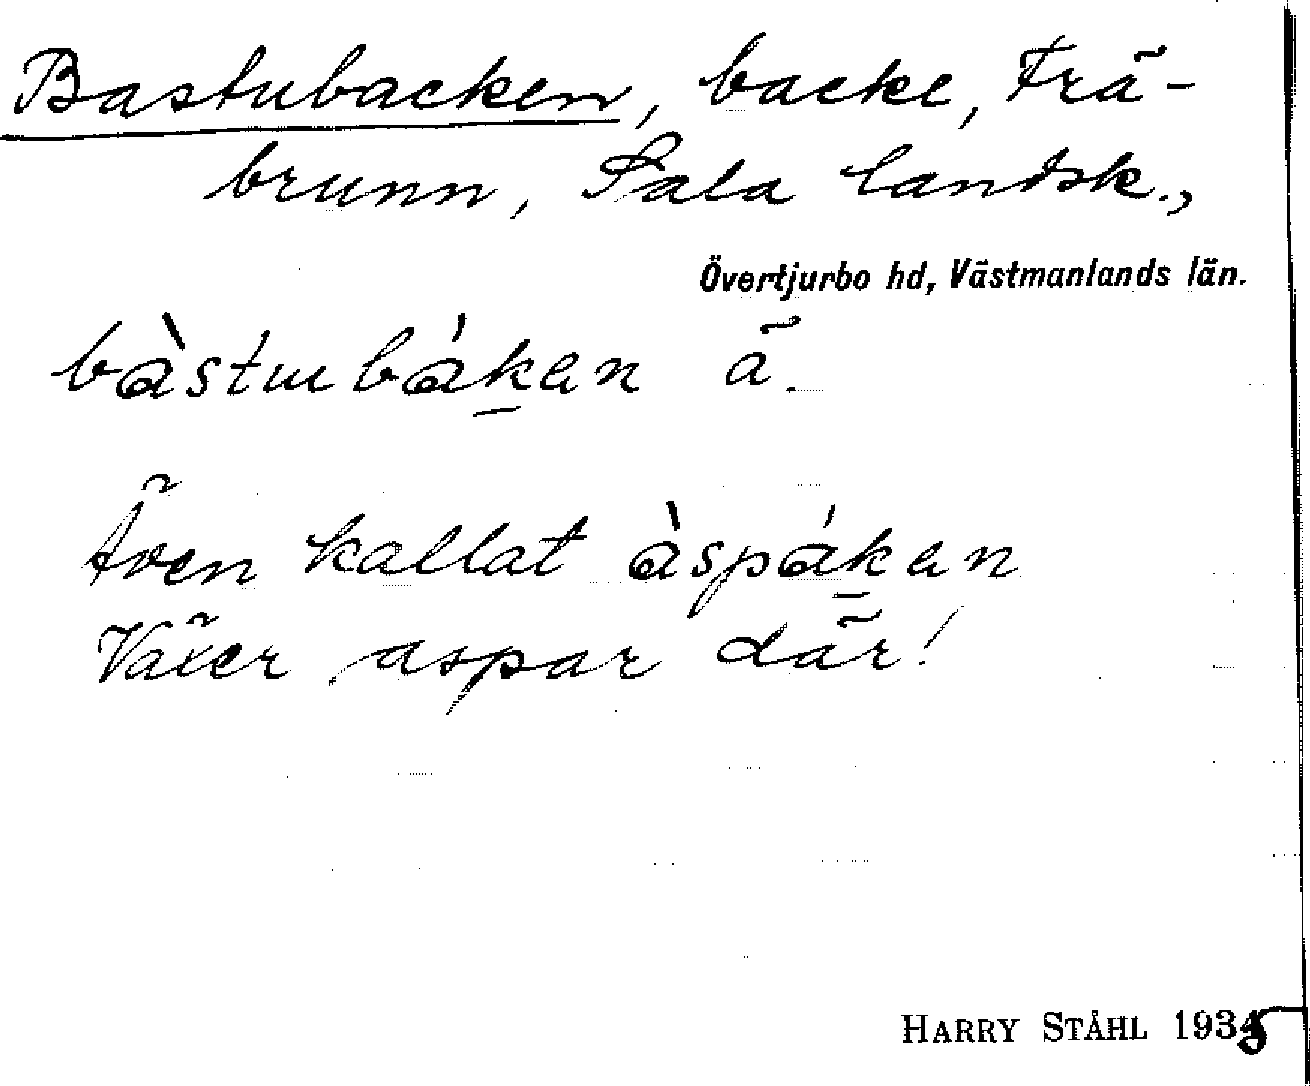 Bastubacken, backe, Trä-
brunn, Sala landsk.,
Övertjurbo hd, Västmanlands län.
bàstɯbákan ä.
Även kallat àspákan
Växer aspar där!
HARRY STÅHL 1935